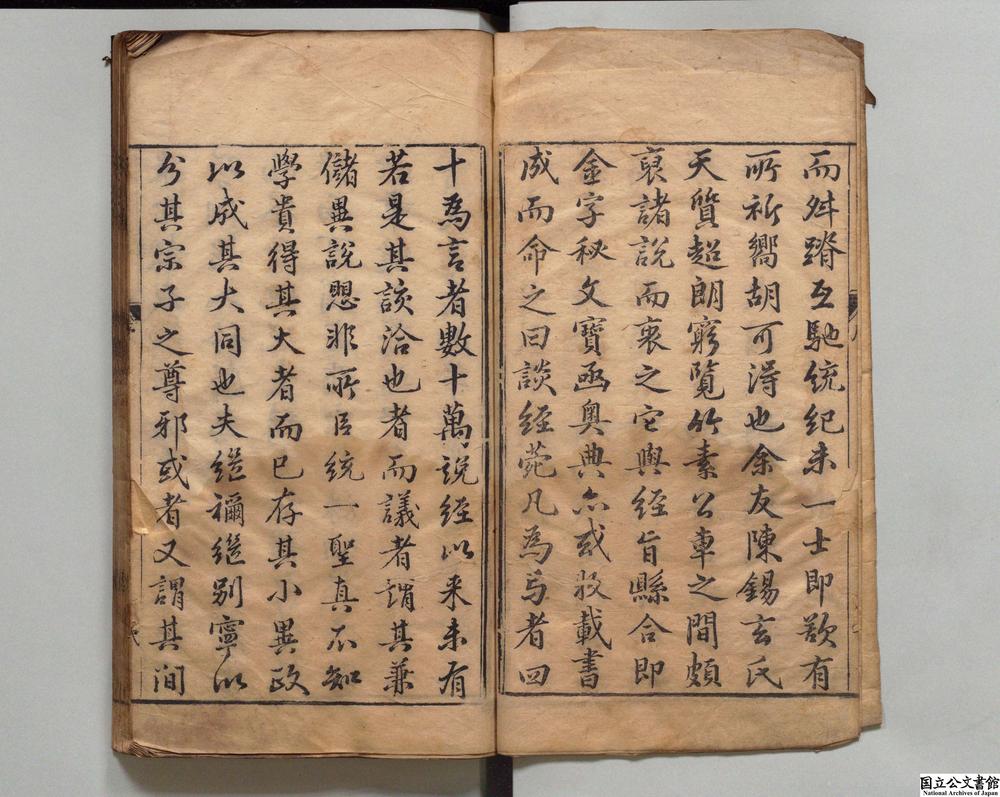 而舛蹐互馳統紀未一士即欲有
所祈嚮胡可得也余友陳錫玄氏
天質超朗窮覽竹素公車之間頗
裒諸說而衷之它與經旨縣合即
金字秘文寶函奧典亦或收載書
成而命之曰談經菀凡為卷者四
十為言者數十萬說經以來未有
若是其該洽也者而議者謂其兼
儲異說愳非所以統一聖真不知
學貴得其大者而已存其小異政
以成其大同也夫繼禰繼別寧以
分其宗子之尊邪或者又謂其間
国立公文書館
National Archives of Japan